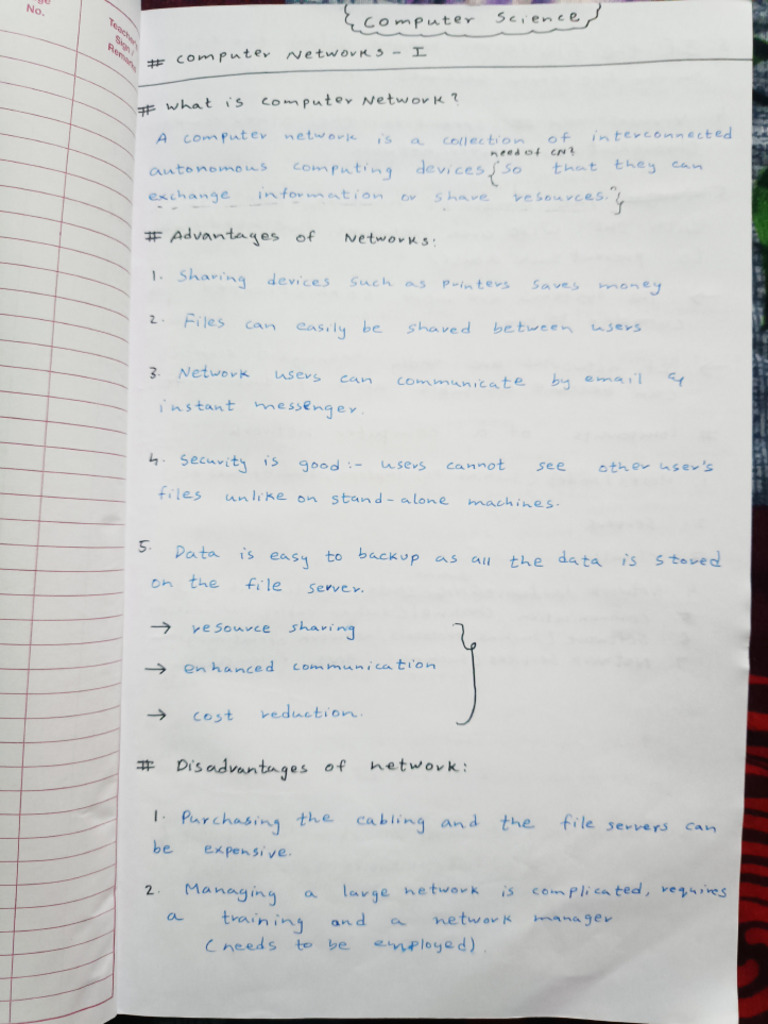 No.
Teacher's
Sign /
Remarks
Computer Science
# Computer Networks - I
# What is Computer Network?
A computer network is a collection of interconnected
need of CN?
autonomous computing devices {so that they can
exchange information or share resources."}
# Advantages of Networks:
1. Sharing devices such as printers saves money
2. Files can easily be shared between users
3. Network users can communicate by email &
instant messenger.
4. Security is good :- users cannot see other user's
files unlike on stand-alone machines.
5. Data is easy to backup as all the data is stored
on the file server.
→ resource sharing
→ enhanced communication
→ cost reduction.
# Disadvantages of network:
1. Purchasing the cabling and the file servers can
be expensive.
2. Managing a large network is complicated, requires
a training and a network manager
(needs to be employed).